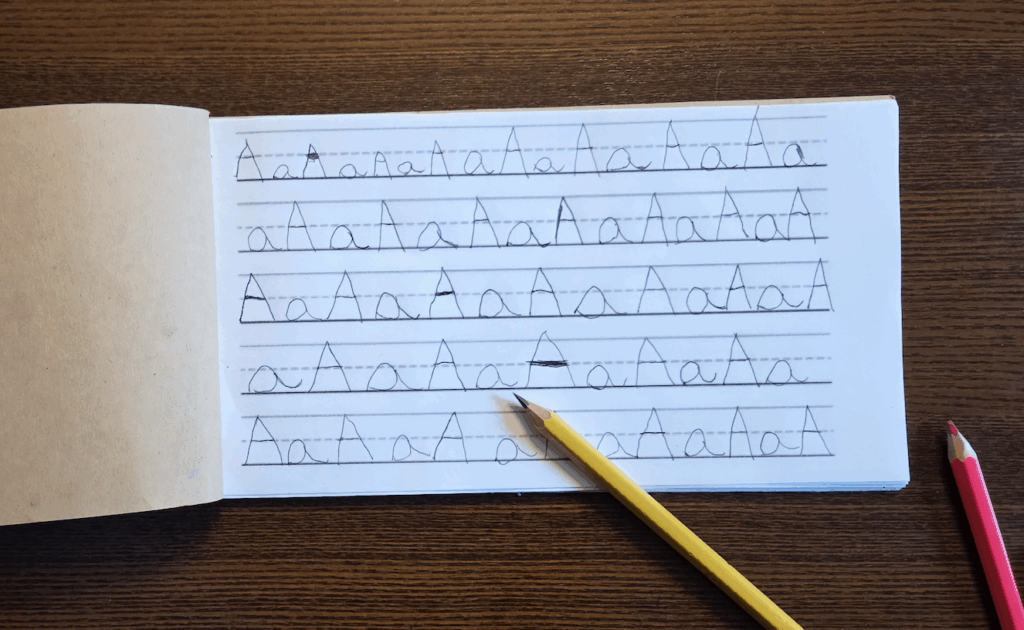 A a A a A a A a A a A a A a A a
a A a A a A a A a A a A a A
A a A a A a A a A a A a A
a A a A a A a A a A a
A a A a A a a A a A a A